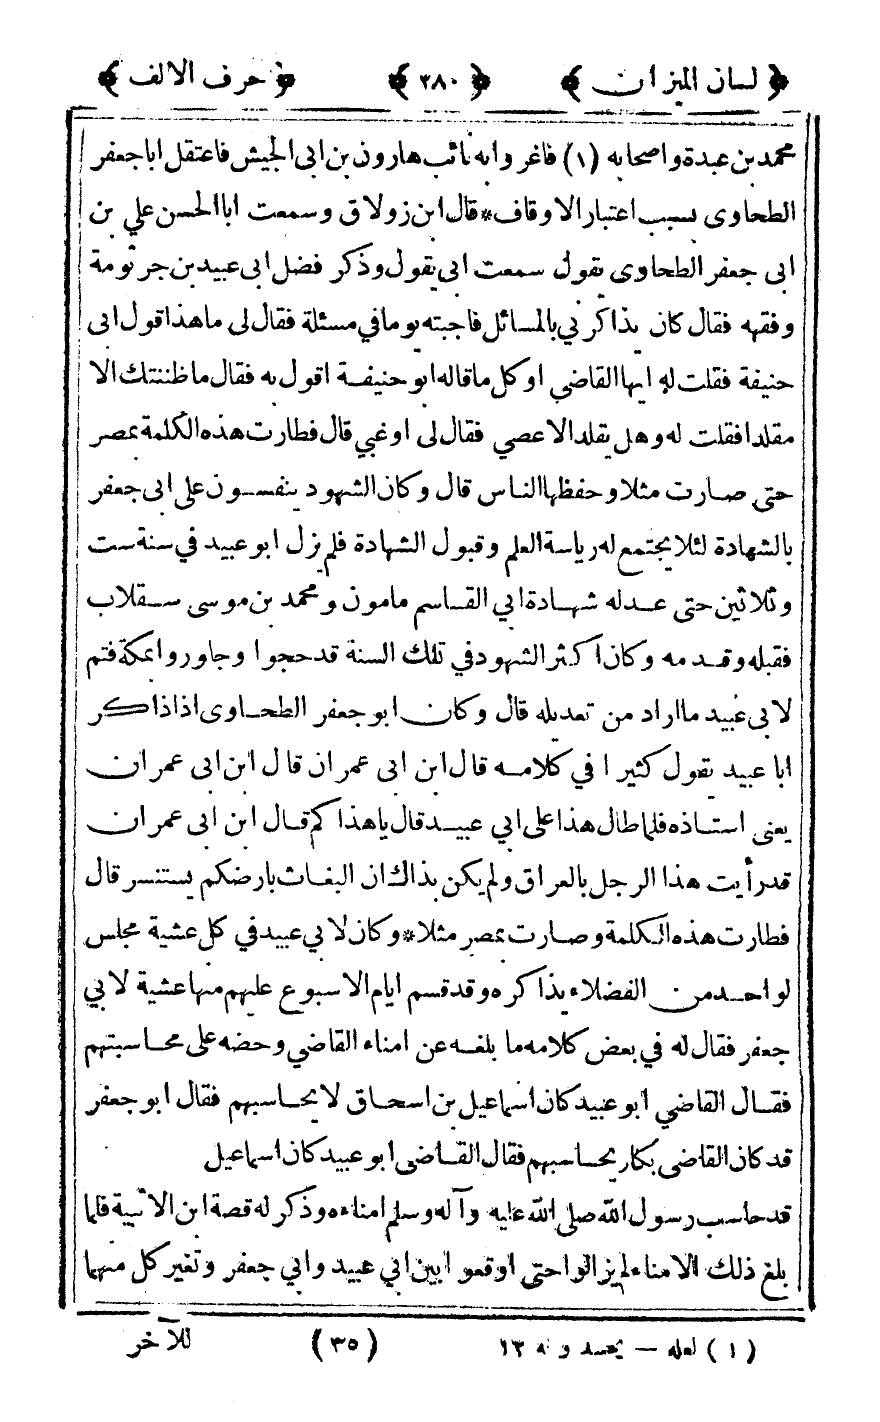 ﴿ لسان الميزان ﴾ ﴿ ٢٨٠ ﴾ ﴿ حرف الالف ﴾
محمد بن عبدة واصحابه (١) فاغروا به نائب هارون بن ابى الجيش فاعتقل ابا جعفر
الطحاوى بسبب اعتبار الاوقاف * قال ابن زولاق وسمعت ابا الحسن علي بن
ابى جعفر الطحاوى يقول سمعت ابى يقول وذكر فضل ابى عبيد بن جرثومة
وفقهه فقال كان يذاكرني بالمسائل فاجبته يوما في مسئلة فقال لى ما هذا قول ابى
حنيفة فقلت له ايها القاضي او كل ما قاله ابو حنيفة اقول به فقال ما ظننتك الا
مقلدا فقلت له وهل يقلد الا عصي فقال لى او غبي قال فطارت هذه الكلمة بمصر
حتى صارت مثلا وحفظها الناس قال وكان الشهود ينفسون على ابى جعفر
بالشهادة لئلا يجتمع له رياسة العلم وقبول الشهادة فلم يزل ابو عبيد في سنة ست
وثلاثين حتى عدله شهادة ابي القاسم مامون ومحمد بن موسى سقلاب
فقبله وقدمه وكان اكثر الشهود في تلك السنة قد حجوا وجاوروا بمكة فتم
لابي عبيد ما اراد من تعديله قال وكان ابو جعفر الطحاوى اذا ذاكر
ابا عبيد يقول كثيرا في كلامه قال ابن ابى عمران قال ابن ابى عمران
يعنى استاذه فلما طال هذا على ابي عبيد قال يا هذا كم قال ابن ابى عمران
قد رأيت هذا الرجل بالعراق ولم يكن بذاك ان البغاث بارضكم يستنسر قال
فطارت هذه الكلمة وصارت بمصر مثلا * وكان لابي عبيد في كل عشية مجلس
لواحد من الفضلاء يذاكره وقد قسم ايام الاسبوع عليهم منها عشية لابي
جعفر فقال له في بعض كلامه ما بلغه عن امناء القاضي وحضه على محاسبتهم
فقال القاضي ابو عبيد كان اسماعيل بن اسحاق لا يحاسبهم فقال ابو جعفر
قد كان القاضى بكار يحاسبهم فقال القاضى ابو عبيد كان اسماعيل
قد حاسب رسول الله صلى الله عليه وآله وسلم امناءه وذكر له قصة ابن الاتبية فلما
بلغ ذلك الامناء لم يزالوا حتى اوقعوا بين ابي عبيد وابي جعفر وتغير كل منهما
(١) لعله — يحسدونه ١٣ (٣٥) للآخر